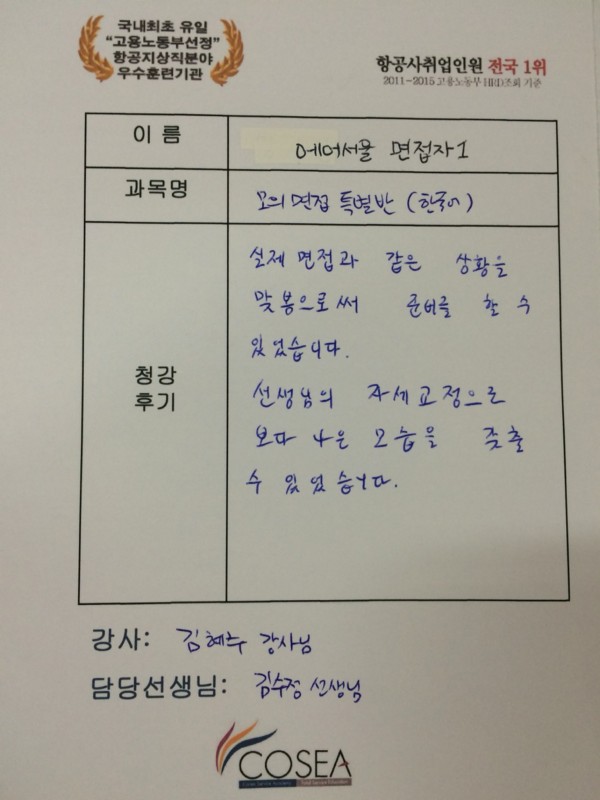 국내최초 유일
“고용노동부선정”
항공지상직분야
우수훈련기관
항공사취업인원 전국 1위
2011~2015 고용노동부 HRD조회 기준
이 름
에어서울 면접자1
과목명
모의 면접 특별반 (한국어)
청강
후기
실제 면접과 같은 상황을
맞봄으로써 준비를 할 수
있었습니다.
선생님의 자세교정으로
보다 나은 모습을 갖출
수 있었습니다.
강사: 김혜수 강사님
담당선생님: 김수정 선생님
COSEA